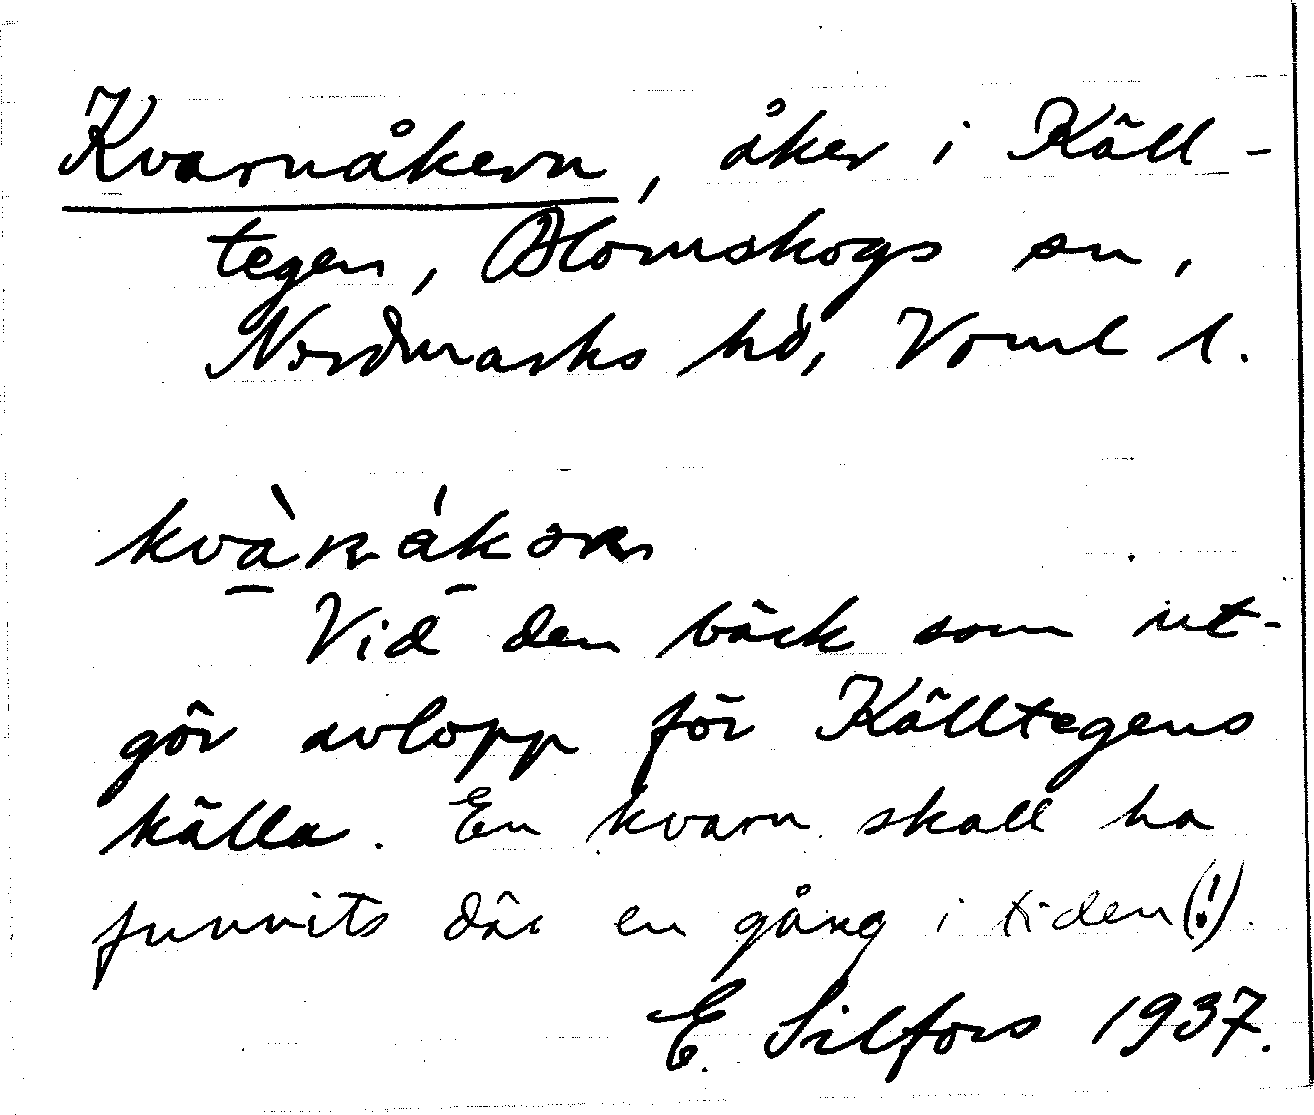 Kvarnåkern, åker i Käll-
tegen, Blomskogs sn,
Nordmarks hd, Vrml l.
Vid den bäck som ut-
gör avlopp för Källtegens
källa. En kvarn skall ha
funnits där en gång i tiden (!).
E. Silfors 1937.